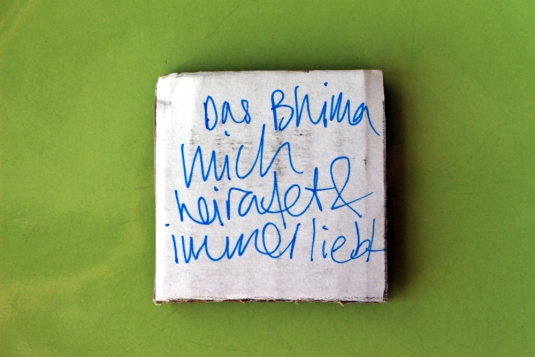 Das Bhima
mich
heiratet &
immer liebt